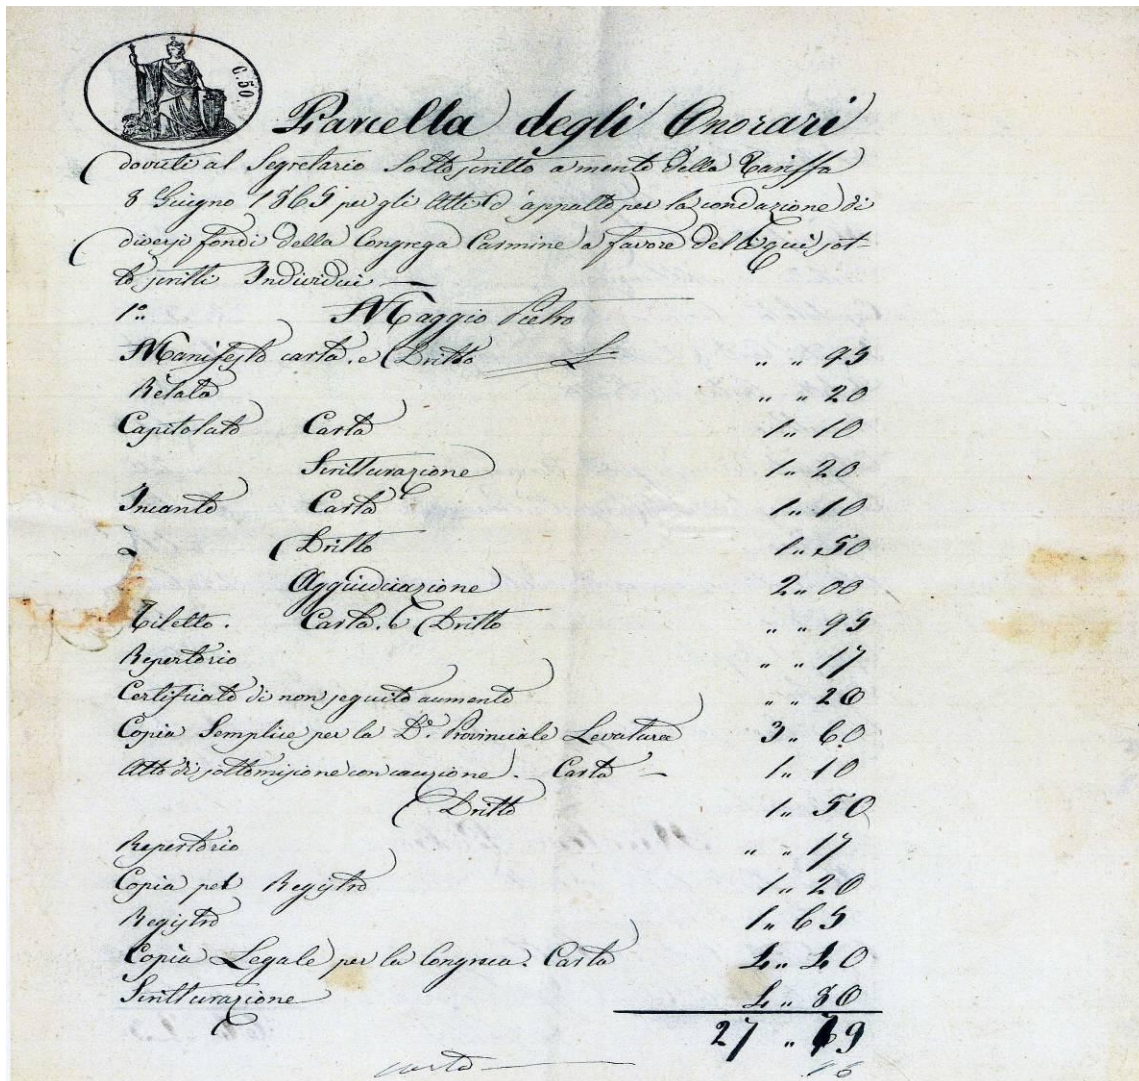 C. 50.
Parcella degli Onorari
dovuti al Segretario Sottoscritto a mente della Tariffa
8 Giugno 1865 per gli Atti d'appalto per la conduzione di
diversi fondi della Congrega Carmine a favore delli qui sot-
to scritti Individui —
1.º Maggio Pietro
Manifesto carta. e Dritto L „ „ 95
Relata „ „ 20
Capitolato Carta 1 „ 10
Scritturazione 1 „ 20
Incanto Carta 1 „ 10
Dritto 1 „ 50
Aggiudicazione 2 „ 00
Tiletto. Carta. E Dritto „ „ 95
Repertorio „ „ 17
Certificato di non seguito aumento „ „ 20
Copia Semplice per la D.e Provinciale Levatura 3 „ 60
Atto di sottomisione con cauzione. Carta — 1 „ 10
Dritto 1 „ 50
Repertorio „ „ 17
Copia pel Registro 1 „ 20
Registro 1 „ 65
Copia Legale per la Congrega. Carta 4 „ 40
Scritturazione 4 „ 80
27 „ 79